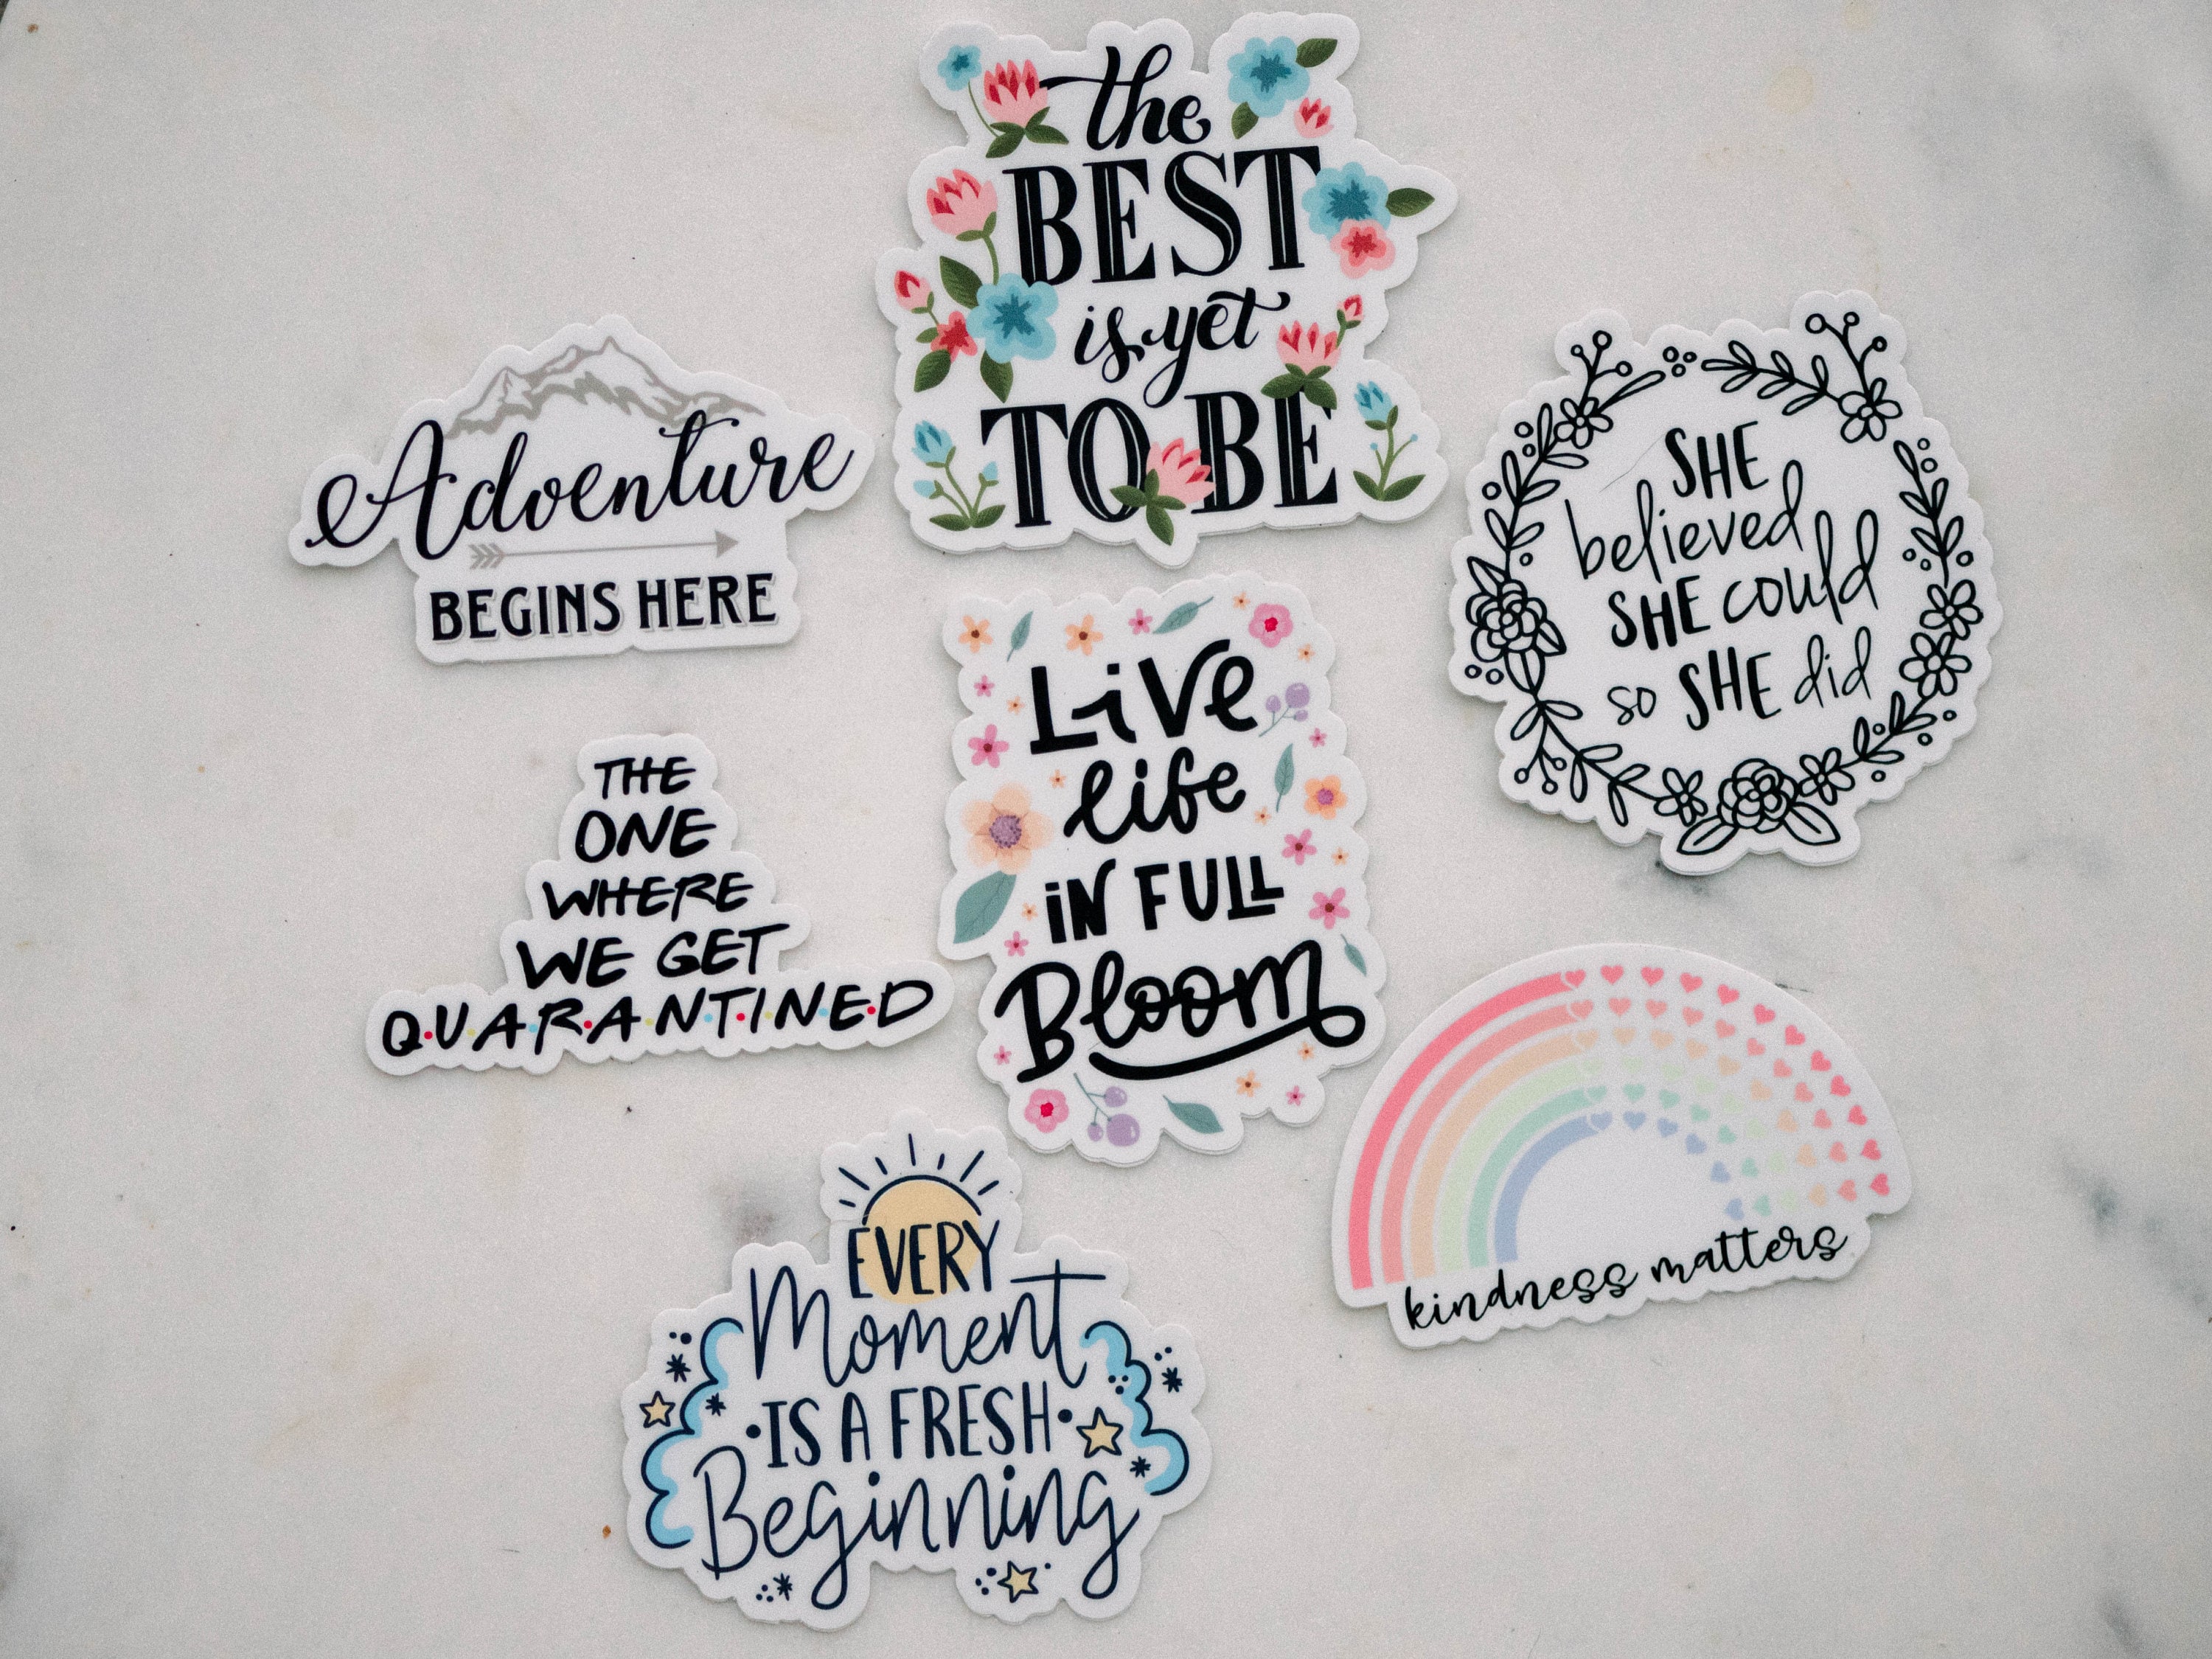 the
BEST
is yet
TO BE
Adventure
BEGINS HERE
SHE
believed
SHE could
so SHE did
Live
life
iN FULL
Bloom
THE
ONE
WHERE
WE GET
Q·U·A·R·A·N·T·I·N·E·D
kindness matters
EVERY
Moment
·IS A FRESH·
Beginning